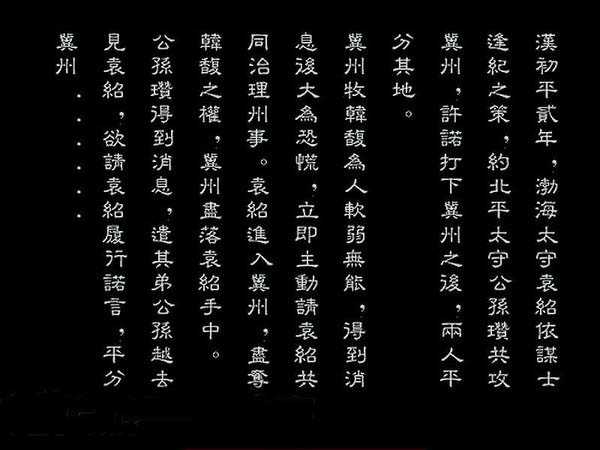 漢初平貳年，渤海太守袁紹依謀士
逢紀之策，約北平太守公孫瓚共攻
冀州，許諾打下冀州之後，兩人平
分其地。
冀州牧韓馥為人軟弱無能，得到消
息後大為恐慌，立即主動請袁紹共
同治理州事。袁紹進入冀州，盡奪
韓馥之權，冀州盡落袁紹手中。
公孫瓚得到消息，遣其弟公孫越去
見袁紹，欲請袁紹履行諾言，平分
冀州．．．．．．